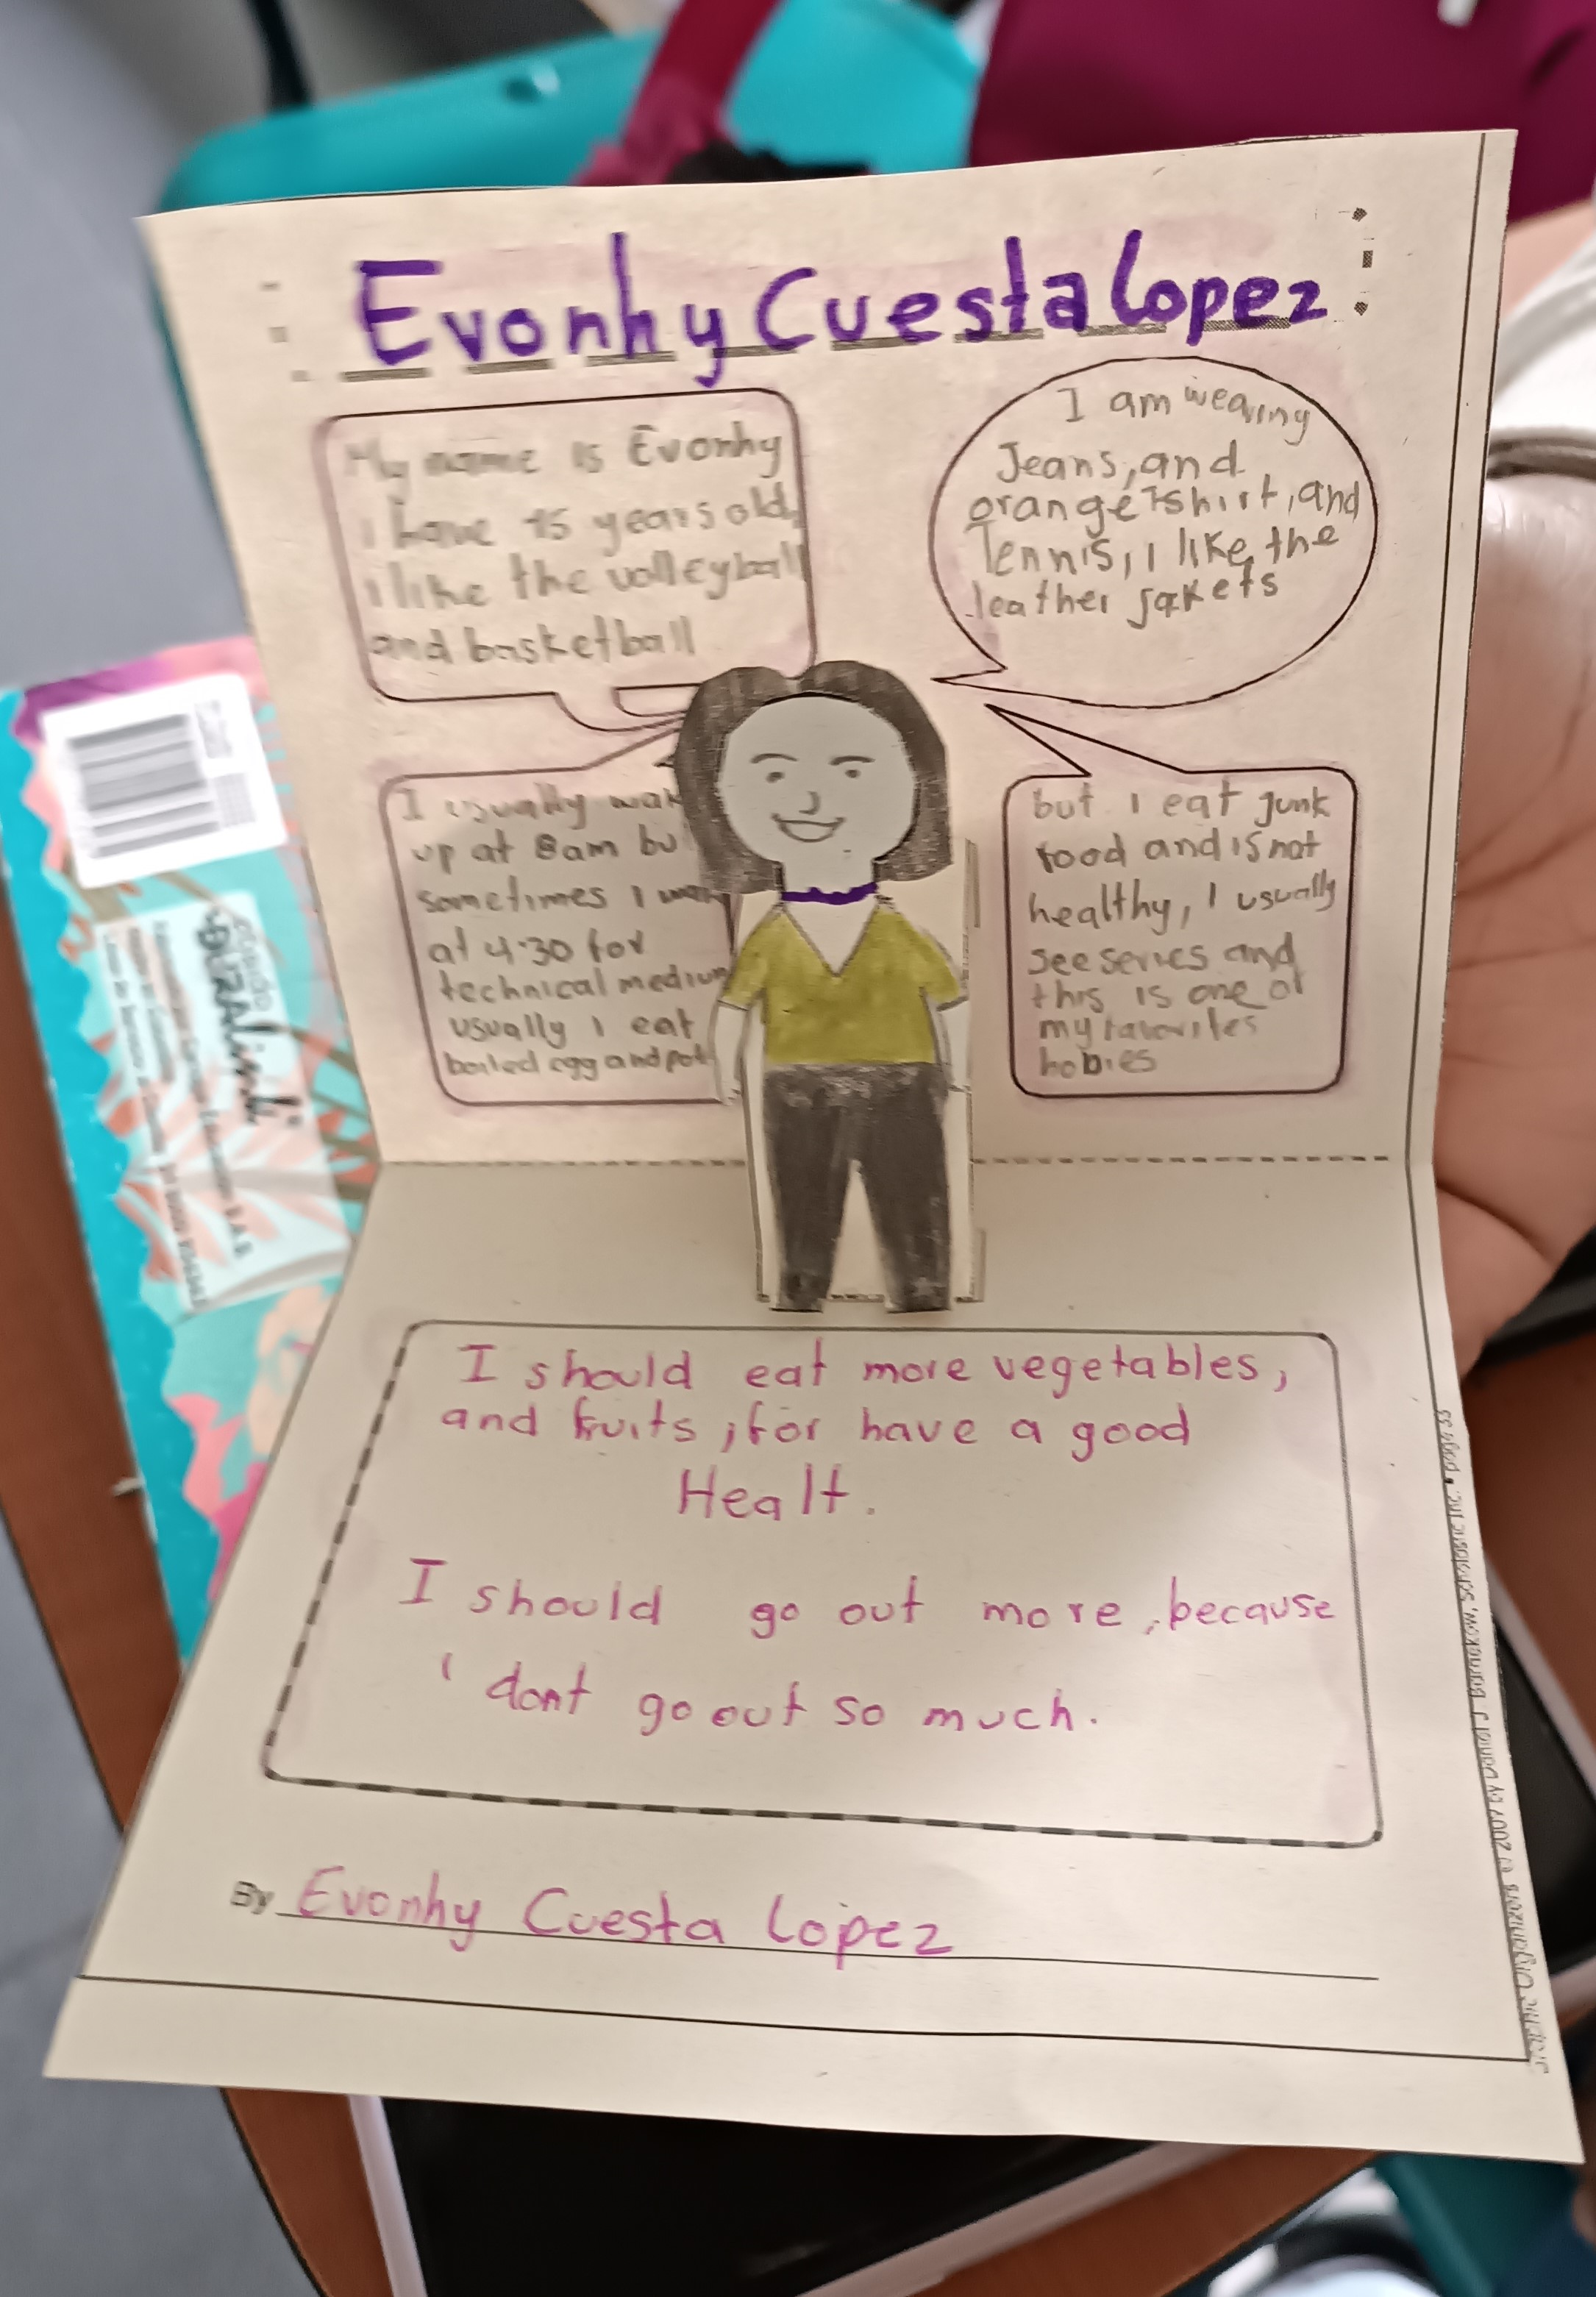 Evonhy Cuesta Lopez
My name is Evonhy
I have 15 years old,
I like the volleyball
and basketball
I am wearing
Jeans, and
orange Tshirt, and
Tennis, I like the
leather jakets
I usually wak
up at 8am bu
sometimes I wak
at 4:30 for
technical medium
usually I eat
boiled egg and pot
but I eat junk
food and is not
healthy, I usually
see series and
this is one of
my favorites
hobies
I should eat more vegetables,
and fruits, for have a good
Healt.
I should go out more, because
I dont go out so much.
By Evonhy Cuesta Lopez
Graphic Organizers © 2007 by Daniel J. Barnekow, Scholastic Inc. • page 33